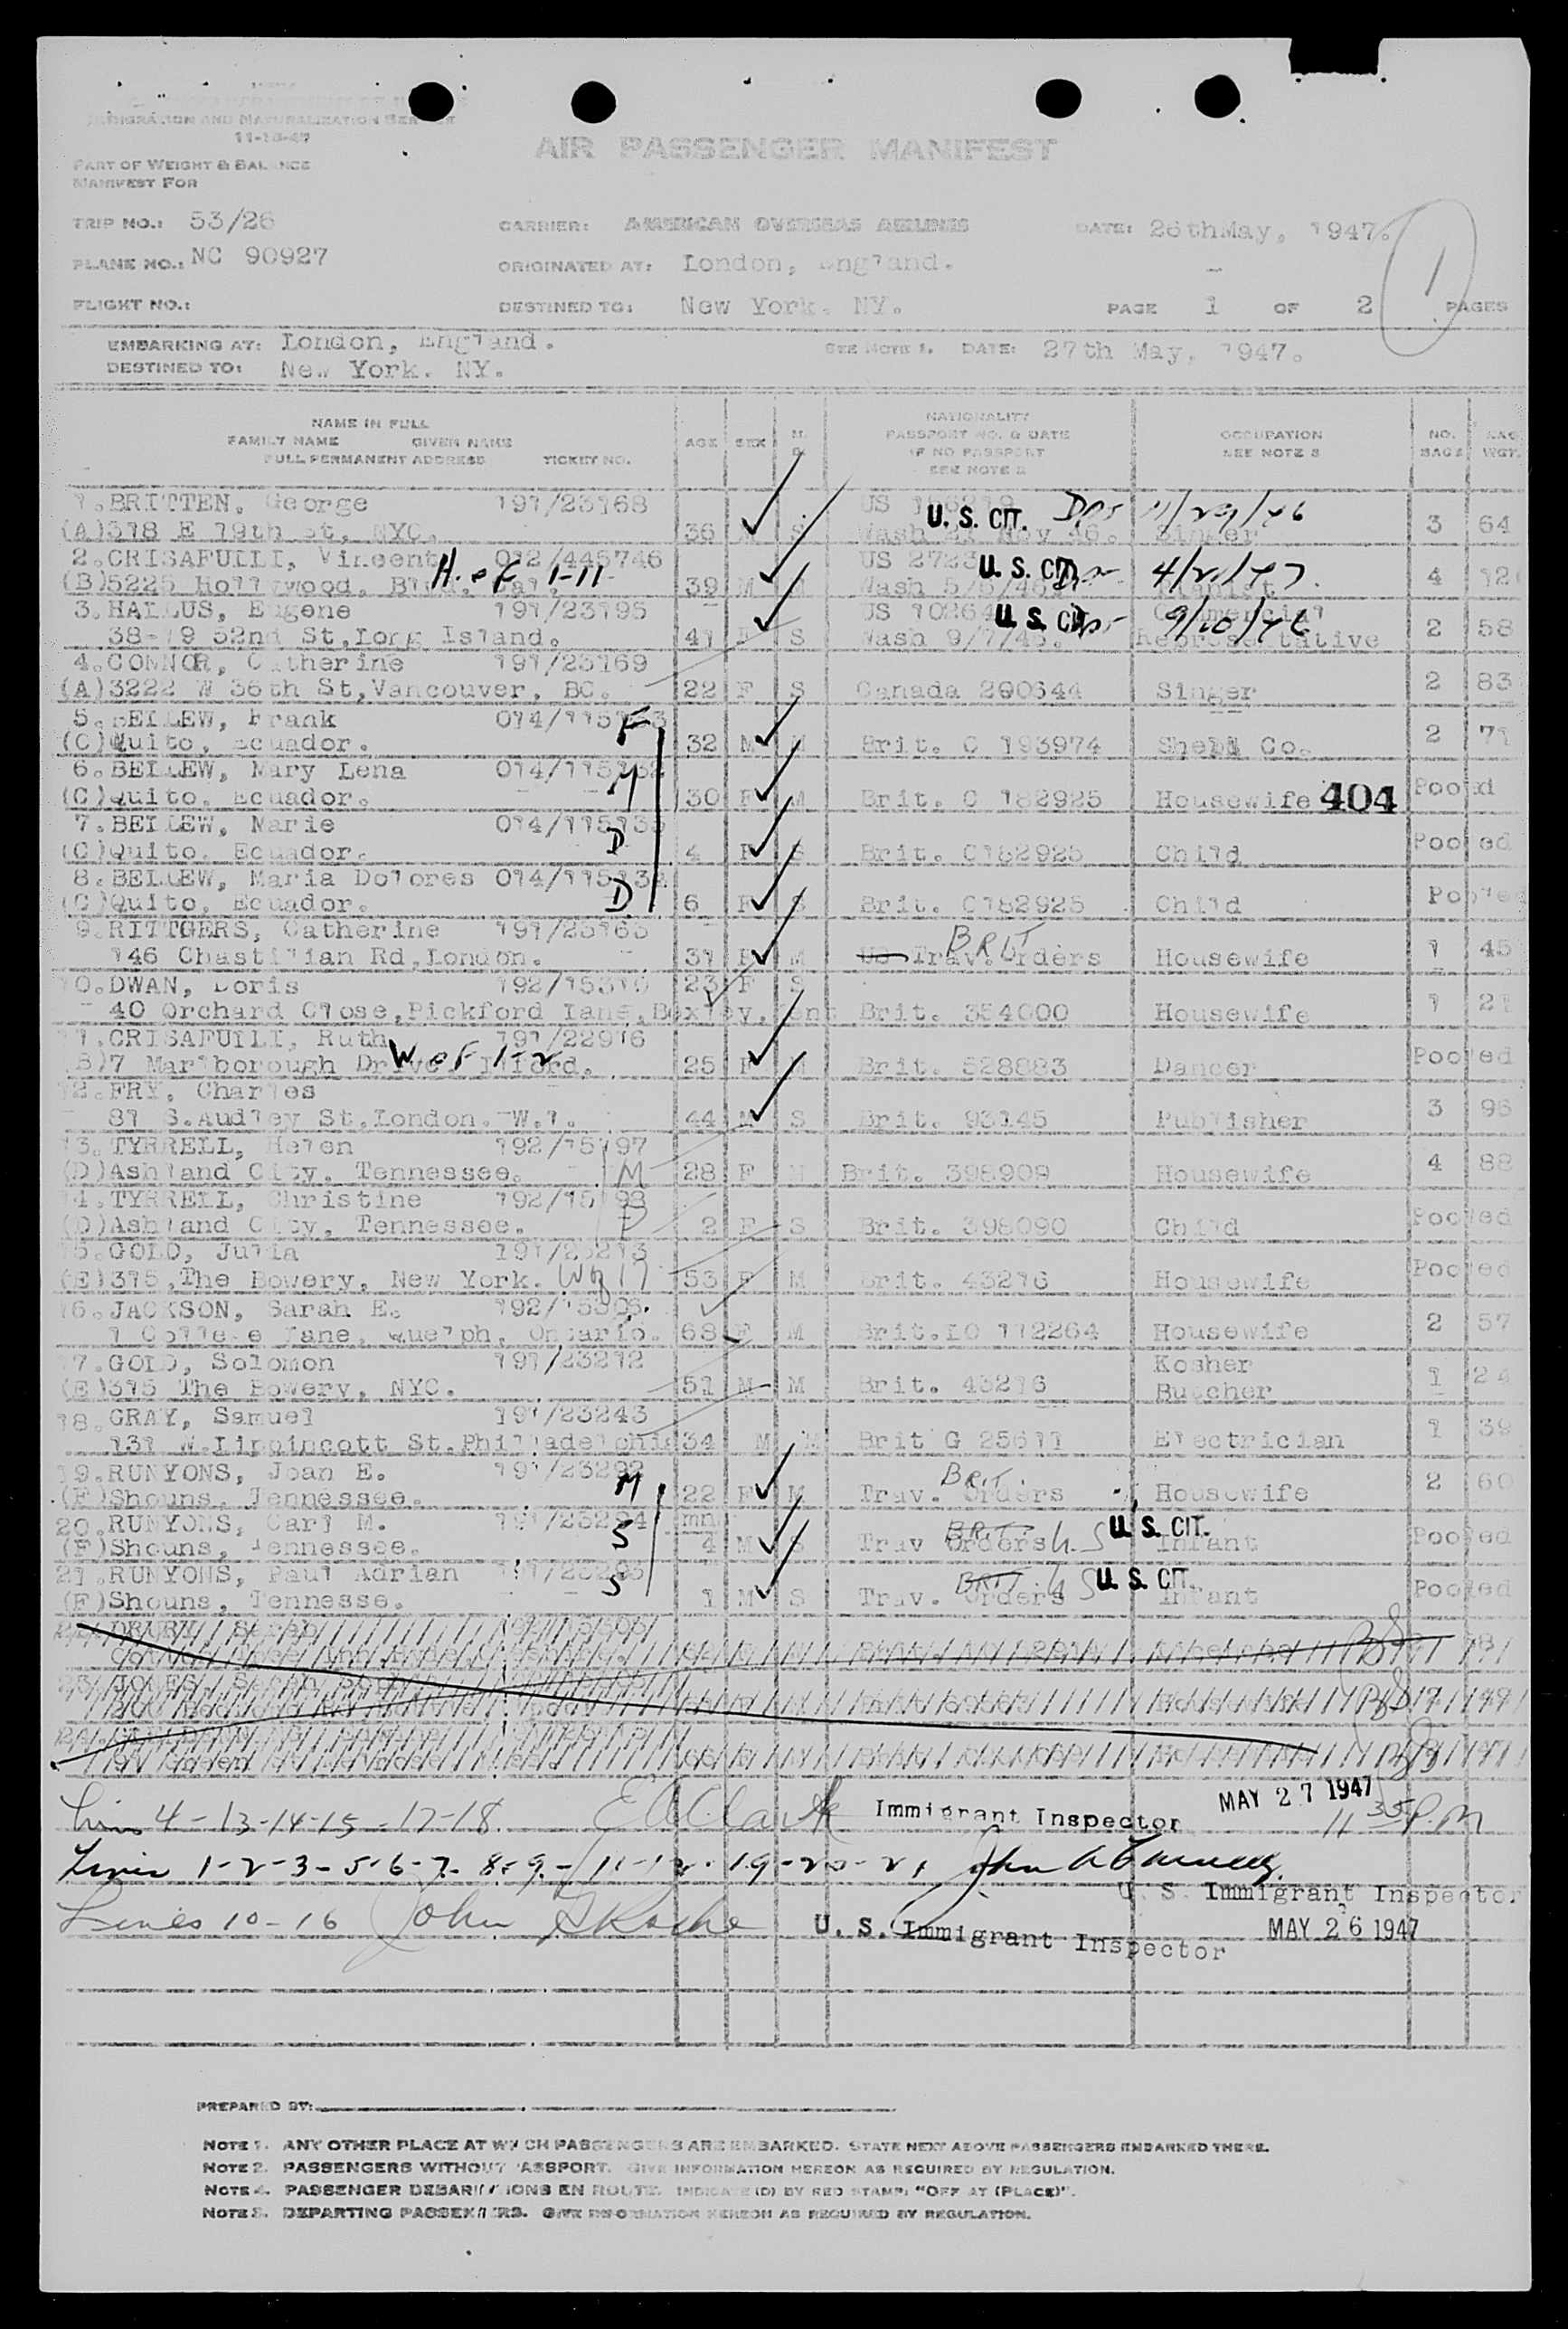 IMMIGRATION AND NATURALIZATION SERVICE
11-18-47
PART OF WEIGHT & BALANCE
MANIFEST FOR
AIR PASSENGER MANIFEST
TRIP NO.: 53/26 CARRIER: AMERICAN OVERSEAS AIRLINES DATE: 26thMay, 1947.
PLANE NO.: NC 90927 ORIGINATED AT: London, England.
FLIGHT NO.: DESTINED TO: New York. NY. PAGE 1 OF 2 PAGES
1
EMBARKING AT: London, England. SEE NOTE 1. DATE: 27th May, 1947.
DESTINED TO: New York. NY.
NAME IN FULL
FAMILY NAME GIVEN NAME
FULL PERMANENT ADDRESS TICKET NO. AGE SEX M. S. NATIONALITY PASSPORT NO. & DATE IF NO PASSPORT SEE NOTE 2 OCCUPATION SEE NOTE 3 NO. BAGS BAG WGT.
1.BRITTEN, George 191/23168 US U. S. CIT. 11/29/46
(A)318 E 19th St, NYC. 36 M S Wash Nov 46. Singer 3 64
2.CRISAFULLI, Vincent 012/445746 US U. S. CIT. 4/21/47.
(B)5225 Hollywood, Blvd, Cal. H. of 1-11 39 M M Wash 4
3.HALLUS, Eugene 191/23195 US U. S. CIT. 9/10/46 Commercial
38-19 52nd St,Long Island. 41 S Wash 9/7/45. Representative 2 58
4.CONNOR, Catherine 191/23169
(A)3222 W 36th St,Vancouver, BC. 22 F S Canada 200644 Singer 2 83
5.BELLEW, Frank 014/115133 F
(C)Quito, Ecuador. 32 M M Brit. C 193974 Shell Co. 2 71
6.BELLEW, Mary Lena 014/115132 M
(C)Quito. Ecuador. 30 F M Brit. C 182925 Housewife 404 Pooled
7.BELLEW, Marie 014/115135 D
(C)Quito. Ecuador. 4 F S Brit. C182925 Child Pooled
8.BELLEW, Maria Dolores 014/115134 D
(C)Quito, Ecuador. 6 F S Brit. C182925 Child Pooled
9.RITTGERS, Catherine 191/23165 BRIT
146 Chastilian Rd,London. 31 F M US Trav. Orders Housewife 1 45
10.DWAN, Doris 192/15310 23 F S
40 Orchard Close,Pickford Lane,Bexley, Kent Brit. 354000 Housewife 1 21
11.CRISAFULLI, Ruth 191/22916
(B)7 Marlborough Drive. Ilford. W of 1-2 25 F M Brit. 528883 Dancer Pooled
12.FRY, Charles
81 S.Audley St,London. W.1. 44 M S Brit. 93145 Publisher 3 96
13.TYRRELL, Helen 192/15197
(D)Ashland City. Tennessee. M 28 F M Brit. 398909 Housewife 4 88
14.TYRRELL, Christine 192/15198
(D)Ashland City, Tennessee. D 2 F S Brit. 398090 Child Pooled
15.GOLD, Julia 191/23213
(E)315,The Bowery, New York. W of 17 53 F M Brit. 43216 Housewife Pooled
16.JACKSON, Sarah E. 192/15306.
1 College Lane, Guelph, Ontario. 68 F M Brit.LO 112264 Housewife 2 57
17.GOLD, Solomon 191/23212 Kosher
(E)315 The Bowery, NYC. 51 M M Brit. 43216 Butcher 1 24
18.GRAY, Samuel 191/23243
131 W.Lippincott St.Philladelphia 34 M M Brit G 25611 Electrician 1 39
19.RUNYONS, Joan E. 191/23292 M BRIT.
(F)Shouns, Tennessee. 22 F M Trav. Orders Housewife 2 60
20.RUNYONS, Carl M. 191/23294 S mn BRIT. U. S. CIT.
(F)Shouns, Tennessee. 4 M S Trav Orders U.S. Infant Pooled
21.RUNYONS, Paul Adrian 191/23295 S BRIT. U S U. S. CIT.
(F)Shouns, Tennesse. 1 M S Trav. Orders Infant Pooled
DRURY, Sarah
JONES, Sarah
Lines 4-13-14-15-17-18. E A Clark Immigrant Inspector MAY 27 1947 11 35 P.M
Lines 1-2-3-5-6-7-8-9-11-12-19-20-21 John A
U. S. Immigrant Inspector
Lines 10-16 John G Roche U. S. Immigrant Inspector MAY 26 1947
PREPARED BY:
NOTE 1. ANY OTHER PLACE AT WHICH PASSENGERS ARE EMBARKED. STATE NEXT ABOVE PASSENGERS EMBARKED THERE.
NOTE 2. PASSENGERS WITHOUT PASSPORT. GIVE INFORMATION HEREON AS REQUIRED BY REGULATION.
NOTE 4. PASSENGER DEBARKATIONS EN ROUTE. INDICATE (D) BY RED STAMP: "OFF AT (PLACE)".
NOTE 3. DEPARTING PASSENGERS. GIVE INFORMATION HEREON AS REQUIRED BY REGULATION.